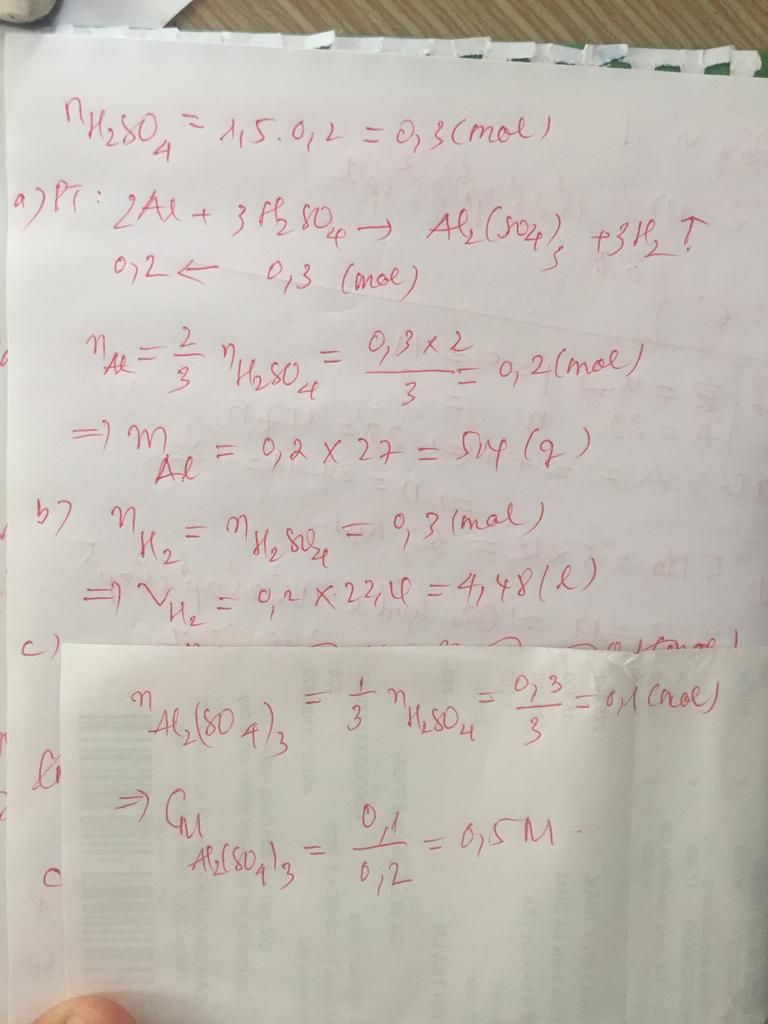 nH₂SO₄ = 1,5 . 0,2 = 0,3 (mol)
a) PT: 2Al + 3H₂SO₄ → Al₂(SO₄)₃ + 3H₂ ↑
0,2 ← 0,3 (mol)
nAl = 2/3 nH₂SO₄ = (0,3 × 2)/3 = 0,2 (mol)
=> mAl = 0,2 × 27 = 5,4 (g)
b) nH₂ = nH₂SO₄ = 0,3 (mol)
=> VH₂ = 0,2 × 22,4 = 4,48 (l)
c)
nAl₂(SO₄)₃ = 1/3 nH₂SO₄ = 0,3/3 = 0,1 (mol)
=> CM Al₂(SO₄)₃ = 0,1/0,2 = 0,5 M